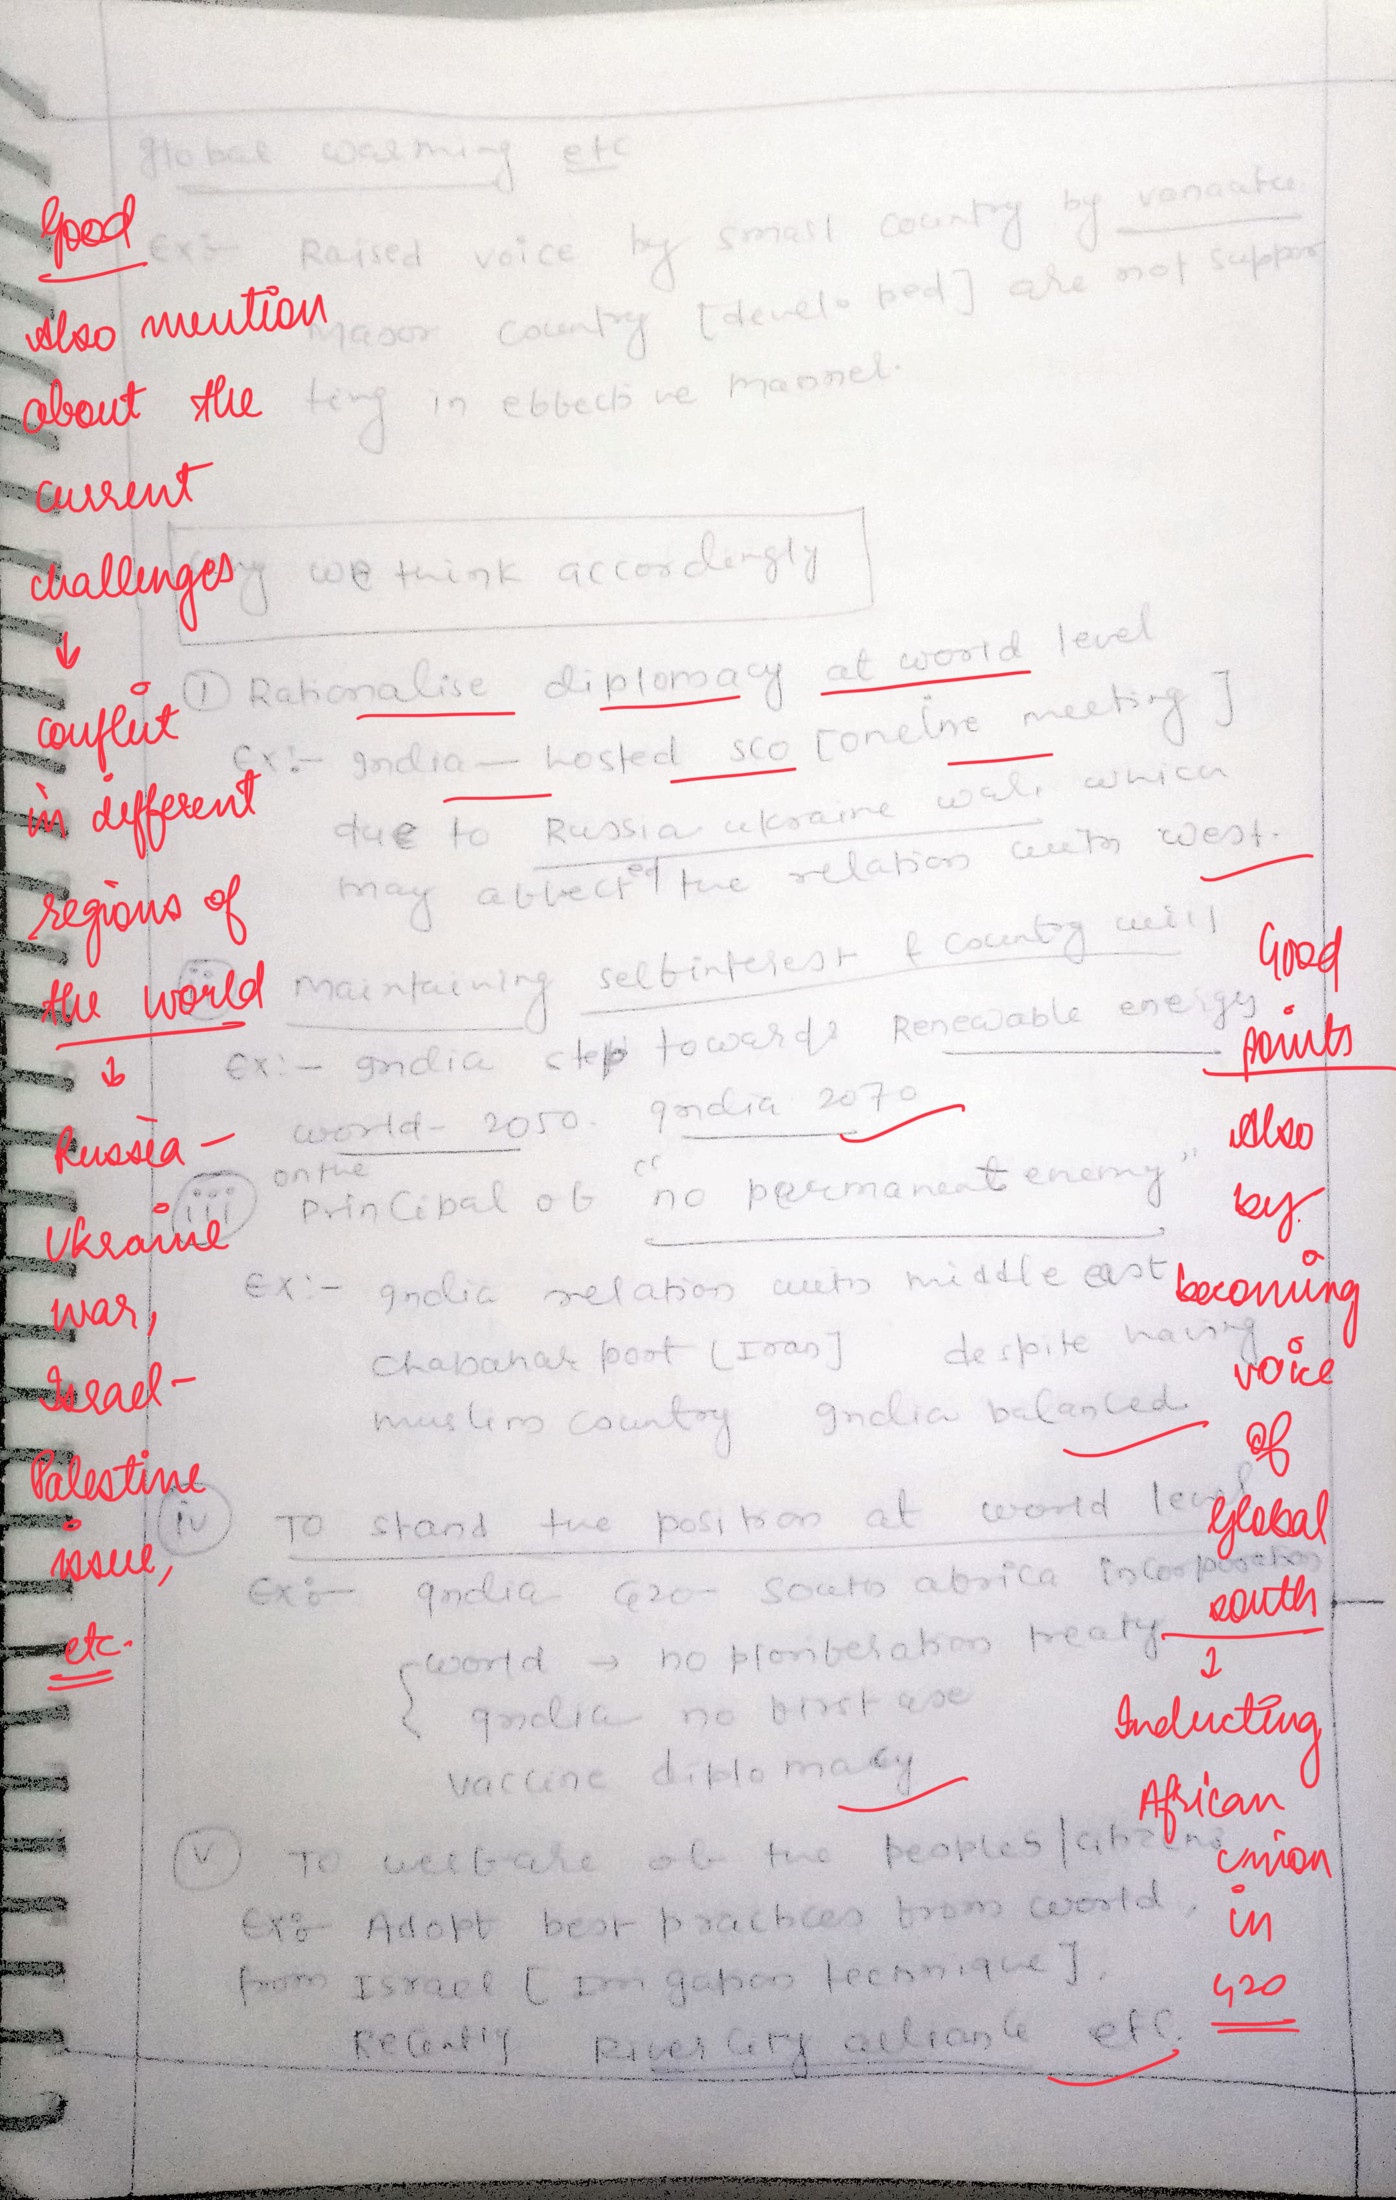 global warming etc
Ex:- Raised voice by small country by vanaatu
Major country [developed] are not suppor
ting in effective manner.
we think accordingly
(i) Rationalise diplomacy at world level
Ex:- India - hosted SCO [online meeting]
due to Russia ukraine war, which
may affected the relation with west.
(ii) maintaining selfinterest & country will
Ex:- India step towards Renewable energy
world - 2050. India 2070
(iii) on the Principal of "no permanent enemy"
Ex:- India relation with middle east
chabahar port [Iran] despite having
muslim country India balanced.
(iv) To stand the position at world level
Ex:- India G20 South africa incorporation
world → no pliniferation treaty
India no first use
vaccine diplomacy
(v) To welfare of the peoples/citizens
Ex:- Adopt best practices from world,
from Israel [Irrigation technique].
Recently River City alliance etc.
Good
Also mention
about the
current
challenges
↓
conflict
in different
regions of
the world
↓
Russia -
Ukraine
war,
Israel -
Palestine
issue,
etc.
Good
points
Also
by
becoming
voice
of
Global
south
↓
Inducting
African
union
in
G20